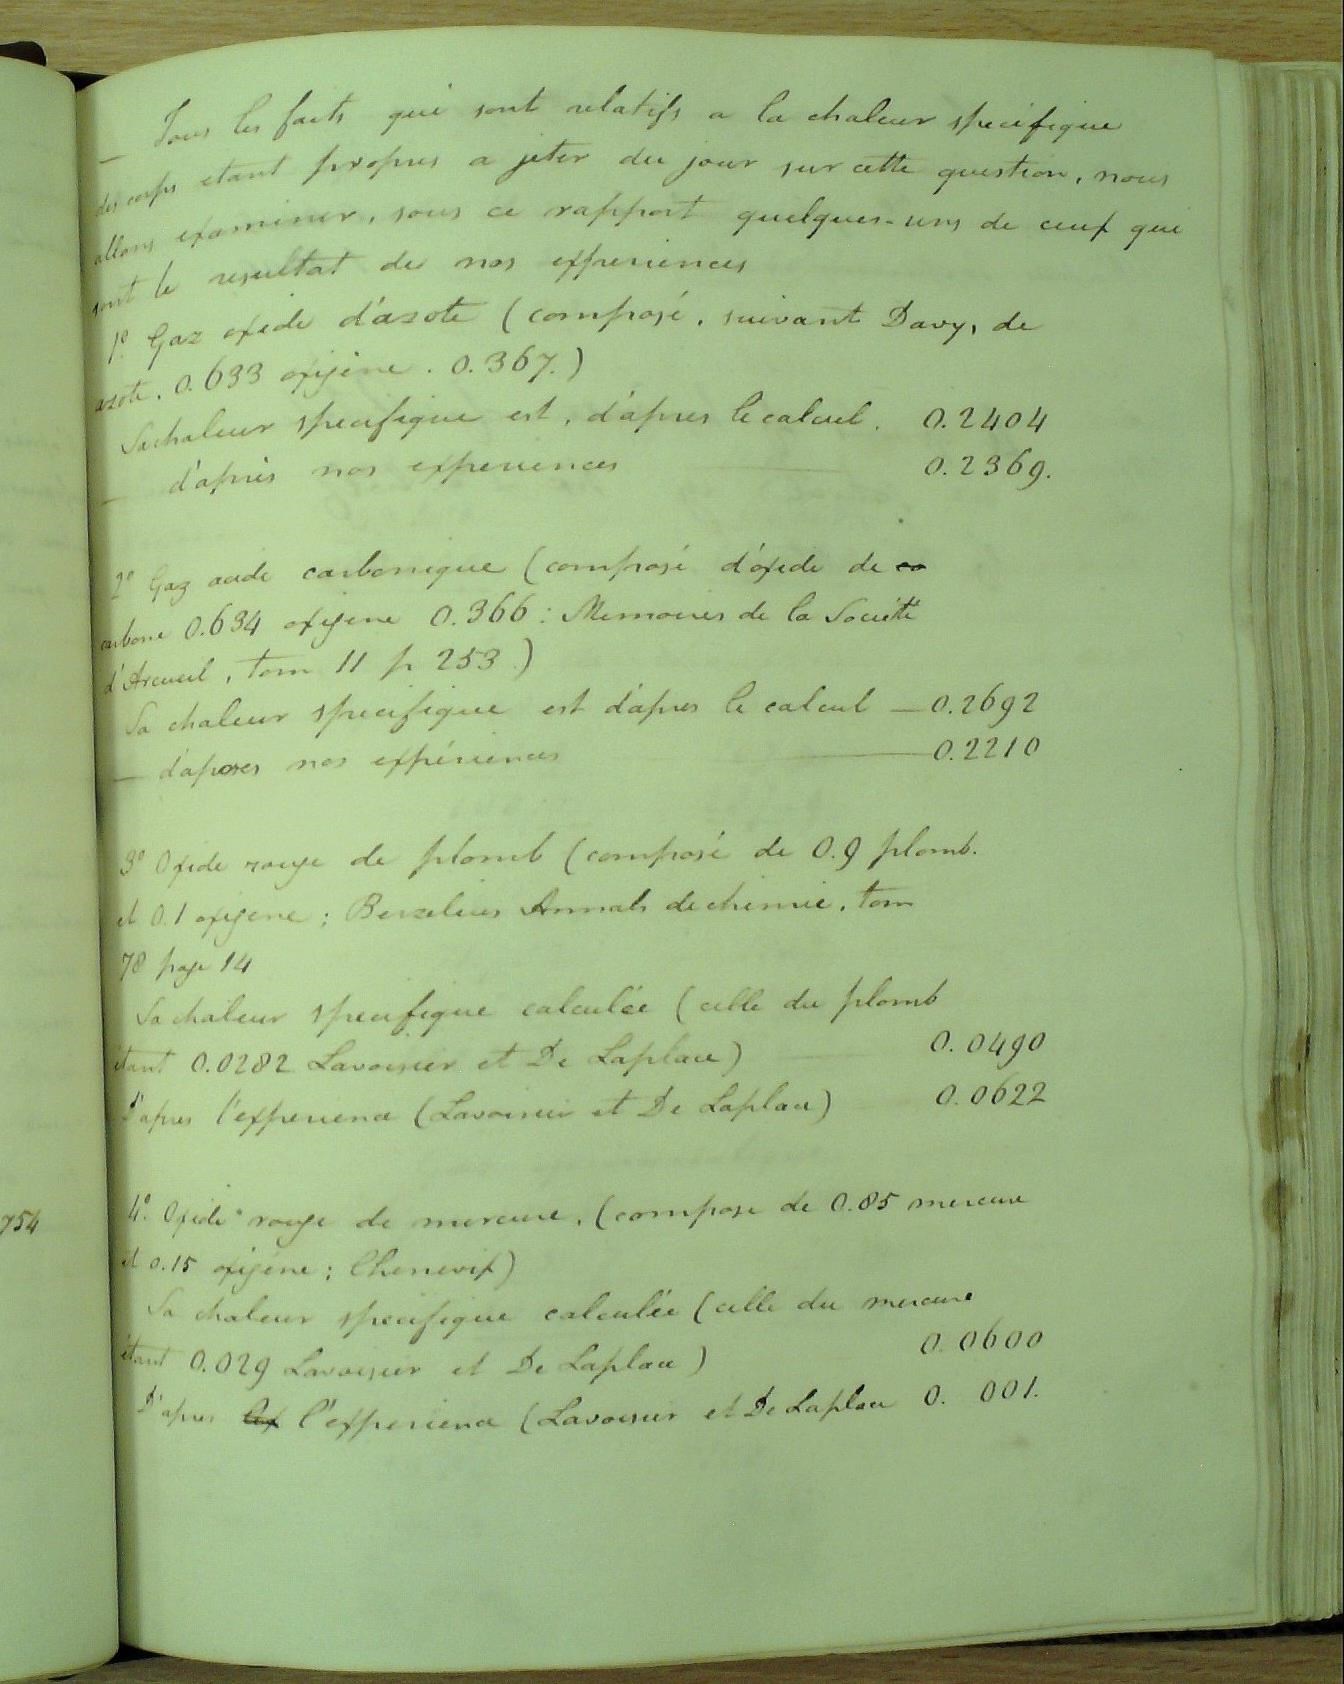 — Tous les faits qui sont relatifs a la chaleur specifique
des corps etant propres a jeter du jour sur cette question, nous
allons examiner, sous ce rapport quelques-uns de ceux qui
sont le resultat de nos experiences
1º Gaz oxide d'azote (composé, suivant Davy, de
azote, 0.633 oxigène. 0.367.)
Sa chaleur specifique est, d'apres le calcul. 0.2404
— d'après nos experiences — 0.2369.
2º Gaz acide carbonique (composé d'oxide de co
carbone 0.634 oxigene 0.366: Memoires de la Société
d'Arcueil, tom 11 p 253.)
Sa chaleur specifique est d'apres le calcul — 0.2692
— d'apres nos expériences — 0.2210
3º Oxide rouge de plomb (composé de 0.9 plomb.
et 0.1 oxigene; Berzelius Annals de chimie, tom
78 page 14
Sa chaleur specifique calculée (celle du plomb
étant 0.0282 Lavoisier et De Laplace) — 0.0490
D'apres l'experience (Lavoisier et De Laplace) 0.0622
4º. Oxide rouge de mercure, (compose de 0.85 mercure
et 0.15 oxigéne; Chenevix)
Sa chaleur specifique calculée (celle du mercure
étant 0.029 Lavoisier et De Laplace) 0.0600
D'apres les l'experience (Lavoisier et De Laplace 0. 001.
754